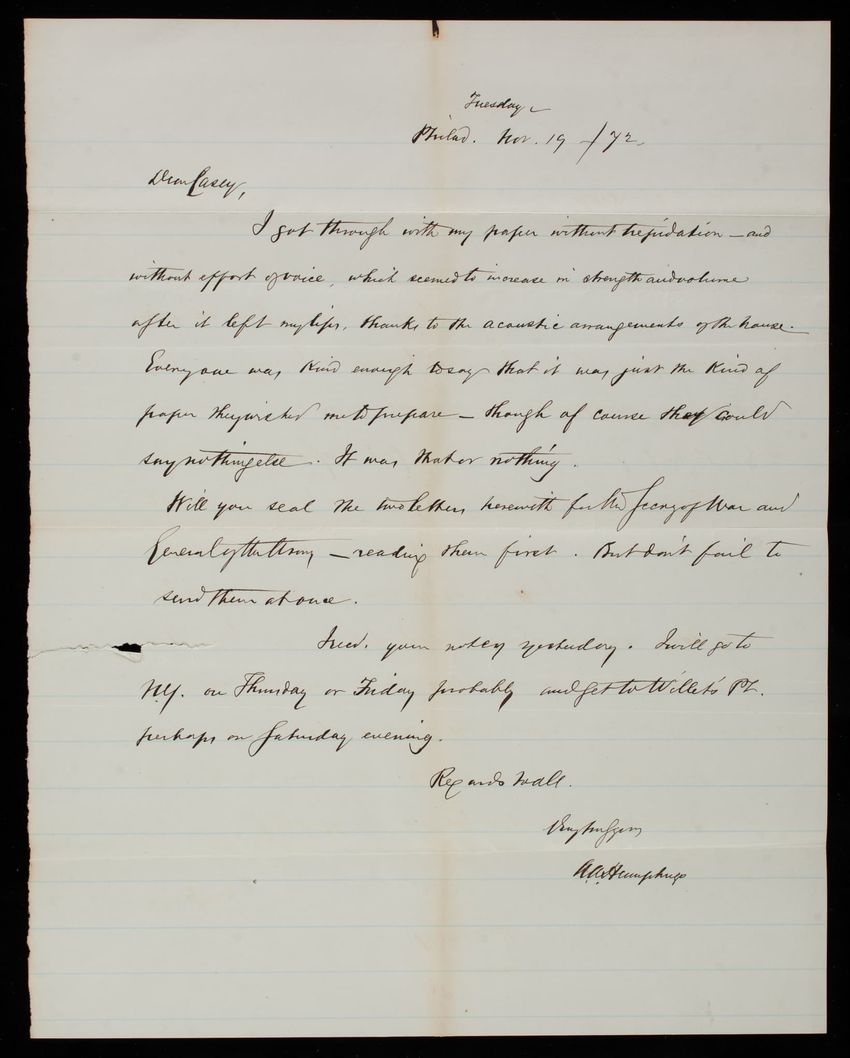 Tuesday
Philad. Nov. 19 /72
Dear Casey,
I got through with my paper without trepidation — and
without effort of voice, which seemed to increase in strength and volume
after it left my lips, thanks to the acoustic arrangements of the house.
Every one was kind enough to say that it was just the kind of
paper they wished me to prepare — though of course they could
say nothing else. It was that or nothing.
Will you seal the two letters herewith for the Secry of War and
General of the Army — reading them first. But don't fail to
send them at once.
I recd. your note of yesterday. I will go to
N.Y. on Thursday or Friday probably and get to Willets Pt.
perhaps on Saturday evening.
Regards to all.
Very truly yrs
A.A. Humphreys